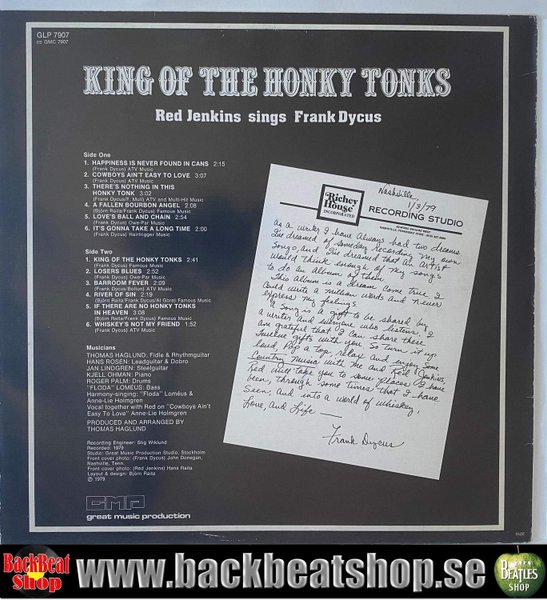 GLP 7907
GMC 7907
KING OF THE HONKY TONKS
Red Jenkins sings Frank Dycus
Side One
1. HAPPINESS IS NEVER FOUND IN CANS 2:15
(Frank Dycus) ATV Music
2. COWBOYS AIN'T EASY TO LOVE 3:07
(Frank Dycus) ATV Music
3. THERE'S NOTHING IN THIS
HONKY TONK 3:02
(Frank Dycus/F. Mull) ATV and Multi-Hit Music
4. A FALLEN BOURBON ANGEL 2:08
(Björn Raita/Frank Dycus) Famous Music
5. LOVE'S BALL AND CHAIN 2:54
(Frank Dycus) Owe-Par Music
6. IT'S GONNA TAKE A LONG TIME 2:00
(Frank Dycus) Hairtrigger Music
Side Two
1. KING OF THE HONKY TONKS 2:41
(Frank Dycus) Famous Music
2. LOSERS BLUES 2:52
(Frank Dycus) Owe-Par Music
3. BARROOM FEVER 2:09
(Frank Dycus/Bolton) ATV Music
4. RIVER OF SIN 2:19
(Björn Raita/Frank Dycus/Al Gore) Famous Music
5. IF THERE ARE NO HONKY TONKS
IN HEAVEN 3:08
(Björn Raita/Frank Dycus) Famous Music
6. WHISKEY'S NOT MY FRIEND 1:52
(Frank Dycus) ATV Music
Musicians
THOMAS HAGLUND: Fidle & Rhythmguitar
HANS ROSÉN: Leadguitar & Dobro
JAN LINDGREN: Steelguitar
KJELL ÖHMAN: Piano
ROGER PALM: Drums
"FLODA" LOMÉUS: Bass
Harmony-singing: "Floda" Loméus &
Anne-Lie Holmgren
Vocal together with Red on "Cowboys Ain't
Easy To Love" Anne-Lie Holmgren
PRODUCED AND ARRANGED BY
THOMAS HAGLUND
Recording Engineer: Stig Wiklund
Recorded: 1979
Studio: Great Music Production Studio, Stockholm
Front cover photo: (Frank Dycus) John Donegan,
Nashville, Tenn.
Front cover photo: (Red Jenkins) Hans Raita
Layout & design: Björn Raita
℗ 1979
GMP
great music production
Richey
House
INCORPORATED
Nashville,
1/3/79
RECORDING STUDIO
As a writer I have always had two dreams
I've dreamed of someday recording my own
Songs, and I've dreamed that an Artist
would think enough of my songs
to do an album of them.
This album is a dream come true. I
could write a million words and never
express my feelings.
A Song is a gift to be shared by
a writer and everyone who listens. I
am grateful that I can share these
twelve gifts with you. So turn it up
loud, Pop a top, relax and enjoy some
Country Music with me and Red Jenkins.
Red will take you to some places I have
been, through some times that I have
Seen, and into a world of whiskey,
Love, and Life —
Frank Dycus
BackBeat
Shop
www.backbeatshop.se
The
BEATLES
SHOP